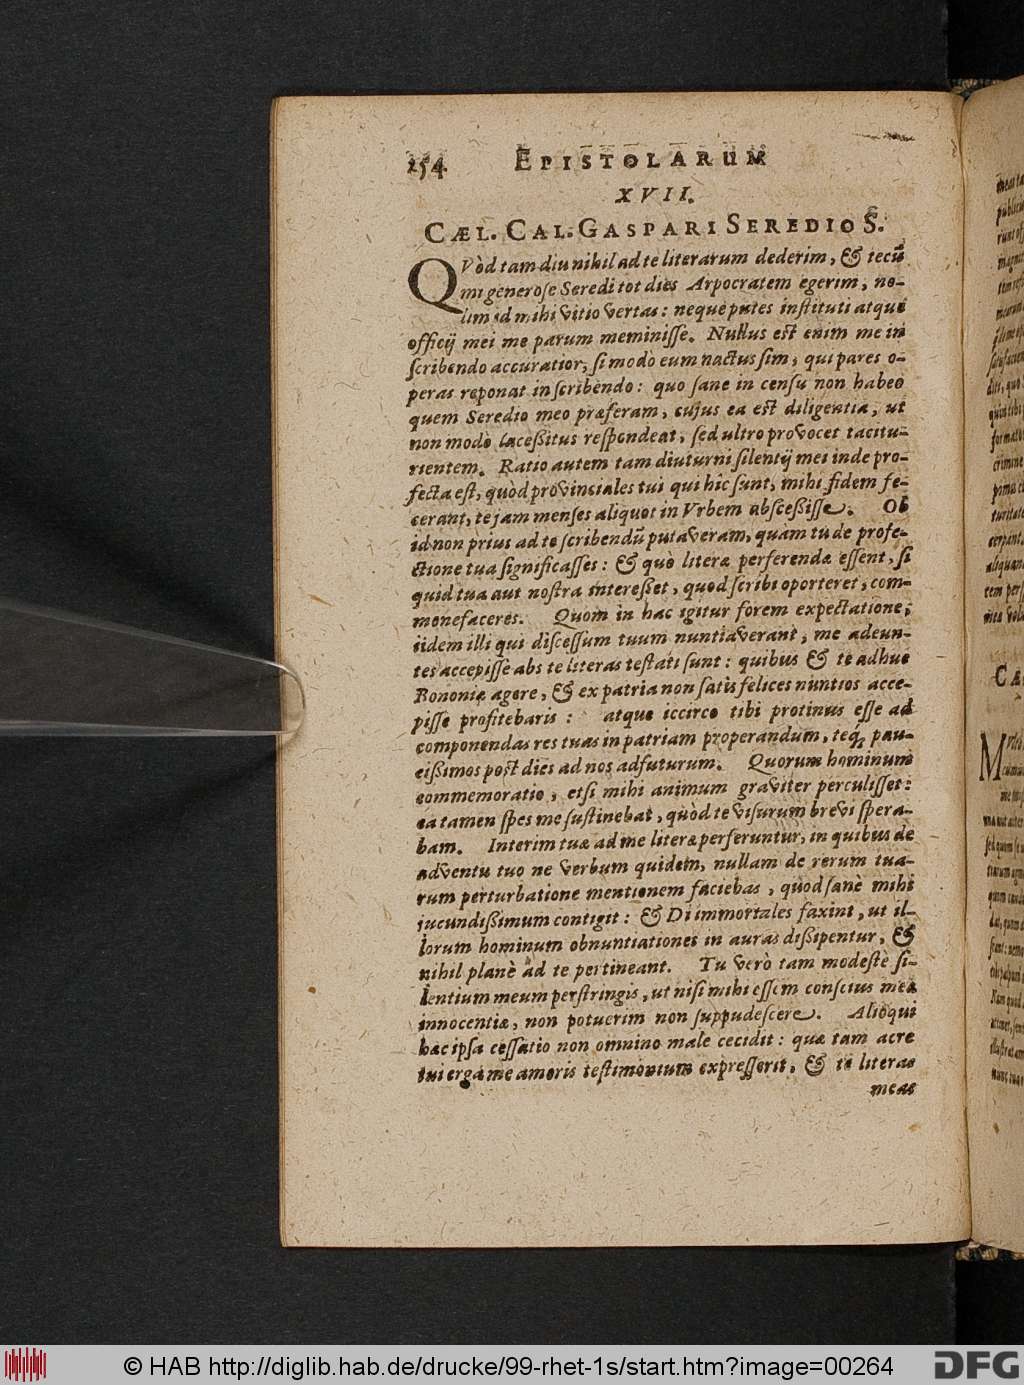 254 EPISTOLARUM
XVII.
CÆL. CAL. GASPARI SEREDIO S.
QVòd tam diu nihil ad te literarum dederim, & tecũ
mi generose Seredi tot dies Arpocratem egerim, no-
lim id mihi vitio vertas: neque putes instituti atque
officij mei me parum meminisse. Nullus est enim me in
scribendo accuratior, si modò eum nactus sim, qui pares o-
peras reponat in scribendo: quo sane in censu non habeo
quem Seredio meo præferam, cujus ea est diligentia, ut
non modò lacessitus respondeat, sed ultro provocet tacitu-
rientem. Ratio autem tam diuturni silentij mei inde pro-
fecta est, quòd provinciales tui qui hîc sunt, mihi fidem fe-
cerant, te jam menses aliquot in Vrbem abscessisse. Ob
id non prius ad te scribendũ putaveram, quam tu de profe-
ctione tua significasses: & quò literæ perferendæ essent, si
quid tua aut nostra interesset, quod scribi oporteret, com-
monefaceres. Quom in hac igitur forem expectatione,
iidem illi qui discessum tuum nuntiaverant, me adeun-
tes accepisse abs te literas testati sunt: quibus & te adhuc
Bononiæ agere, & ex patria non satis felices nuntios acce-
pisse profitebaris: atque iccirco tibi protinus esse ad
componendas res tuas in patriam properandum, teq́; pau-
cißimos post dies ad nos adfuturum. Quorum hominum
commemoratio, etsi mihi animum graviter perculisset:
ea tamen spes me sustinebat, quòd te visurum brevi spera-
bam. Interim tuæ ad me literæ perferuntur, in quibus de
adventu tuo ne verbum quidem, nullam de rerum tua-
rum perturbatione mentionem faciebas, quòd sanè mihi
jucundißimum contigit: & Di immortales faxint, ut il-
lorum hominum obnuntiationes in auras dißipentur, &
nihil planè ad te pertineant. Tu verò tam modestè si-
lentium meum perstringis, ut nisi mihi essem conscius meæ
innocentiæ, non potuerim non suppudescere. Alioqui
hæc ipsa cessatio non omnino male cecidit: quæ tam acre
tui erga me amoris testimonium expresserit, & te literas
meas
© HAB http://diglib.hab.de/drucke/99-rhet-1s/start.htm?image=00264
DFG